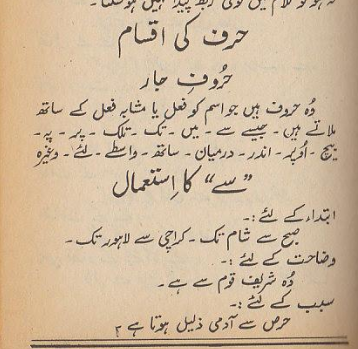 نہ ہو تو کلام میں کوئی ربط پیدا نہیں ہو سکتا۔
حرف کی اقسام
حُروفِ جار
وُہ حروف ہیں جو اسم کو فعل یا مشابہ فعل کے ساتھ
ملاتے ہیں۔ جیسے سے۔ میں۔ تک۔ تلک۔ پر۔ پہ۔
بیچ۔ اُوپر۔ اندر۔ درمیان۔ ساتھ۔ واسطے۔ لئے۔ وغیرہ
”سے“ کا اِستعمال
ابتداء کے لئے:۔
صبح سے شام تک۔ کراچی سے لاہور تک۔
وضاحت کے لئے:۔
وُہ شریف قوم سے ہے۔
سبب کے لئے:۔
حرص سے آدمی ذلیل ہوتا ہے